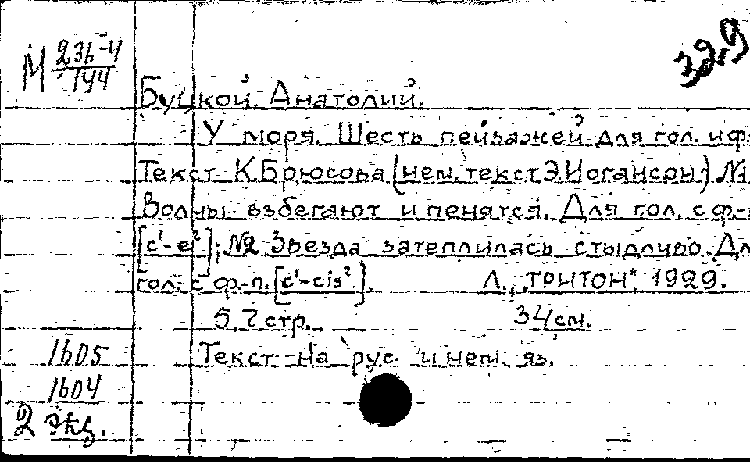 32,9
М 236-4
144
Буцкой, Анатолий.
У моря. Шесть пейзажей для гол. и ф-
Текст К.Брюсова (нем. текст Э.Иогансон.) №1
Волны взбегают и пенятся. Для гол. с ф-
[c¹-e²]; №2 Звезда затеплилась стыдливо. Дл
гол. с ф-п. [c¹-cis²]. Л., "Тритон", 1929.
5,7 стр. 34 см.
1605 Текст на рус. и нем. яз.
1604
2 экз.